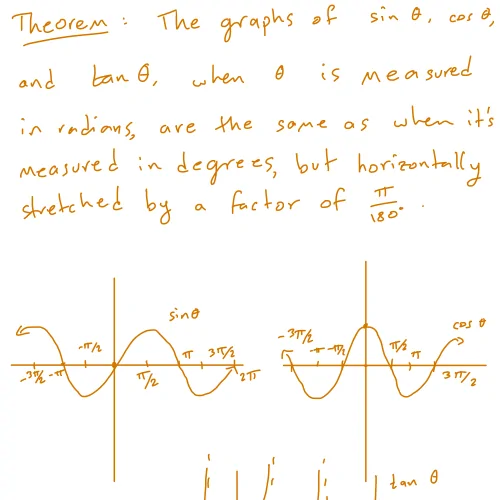 Theorem: The graphs of sin θ, cos θ,
and tan θ, when θ is measured
in radians, are the same as when it's
measured in degrees, but horizontally
stretched by a factor of π/180°.
sin θ
-3π/2 -π -π/2 π/2 π 3π/2 2π
cos θ
-3π/2 -π -π/2 π/2 π 3π/2
tan θ